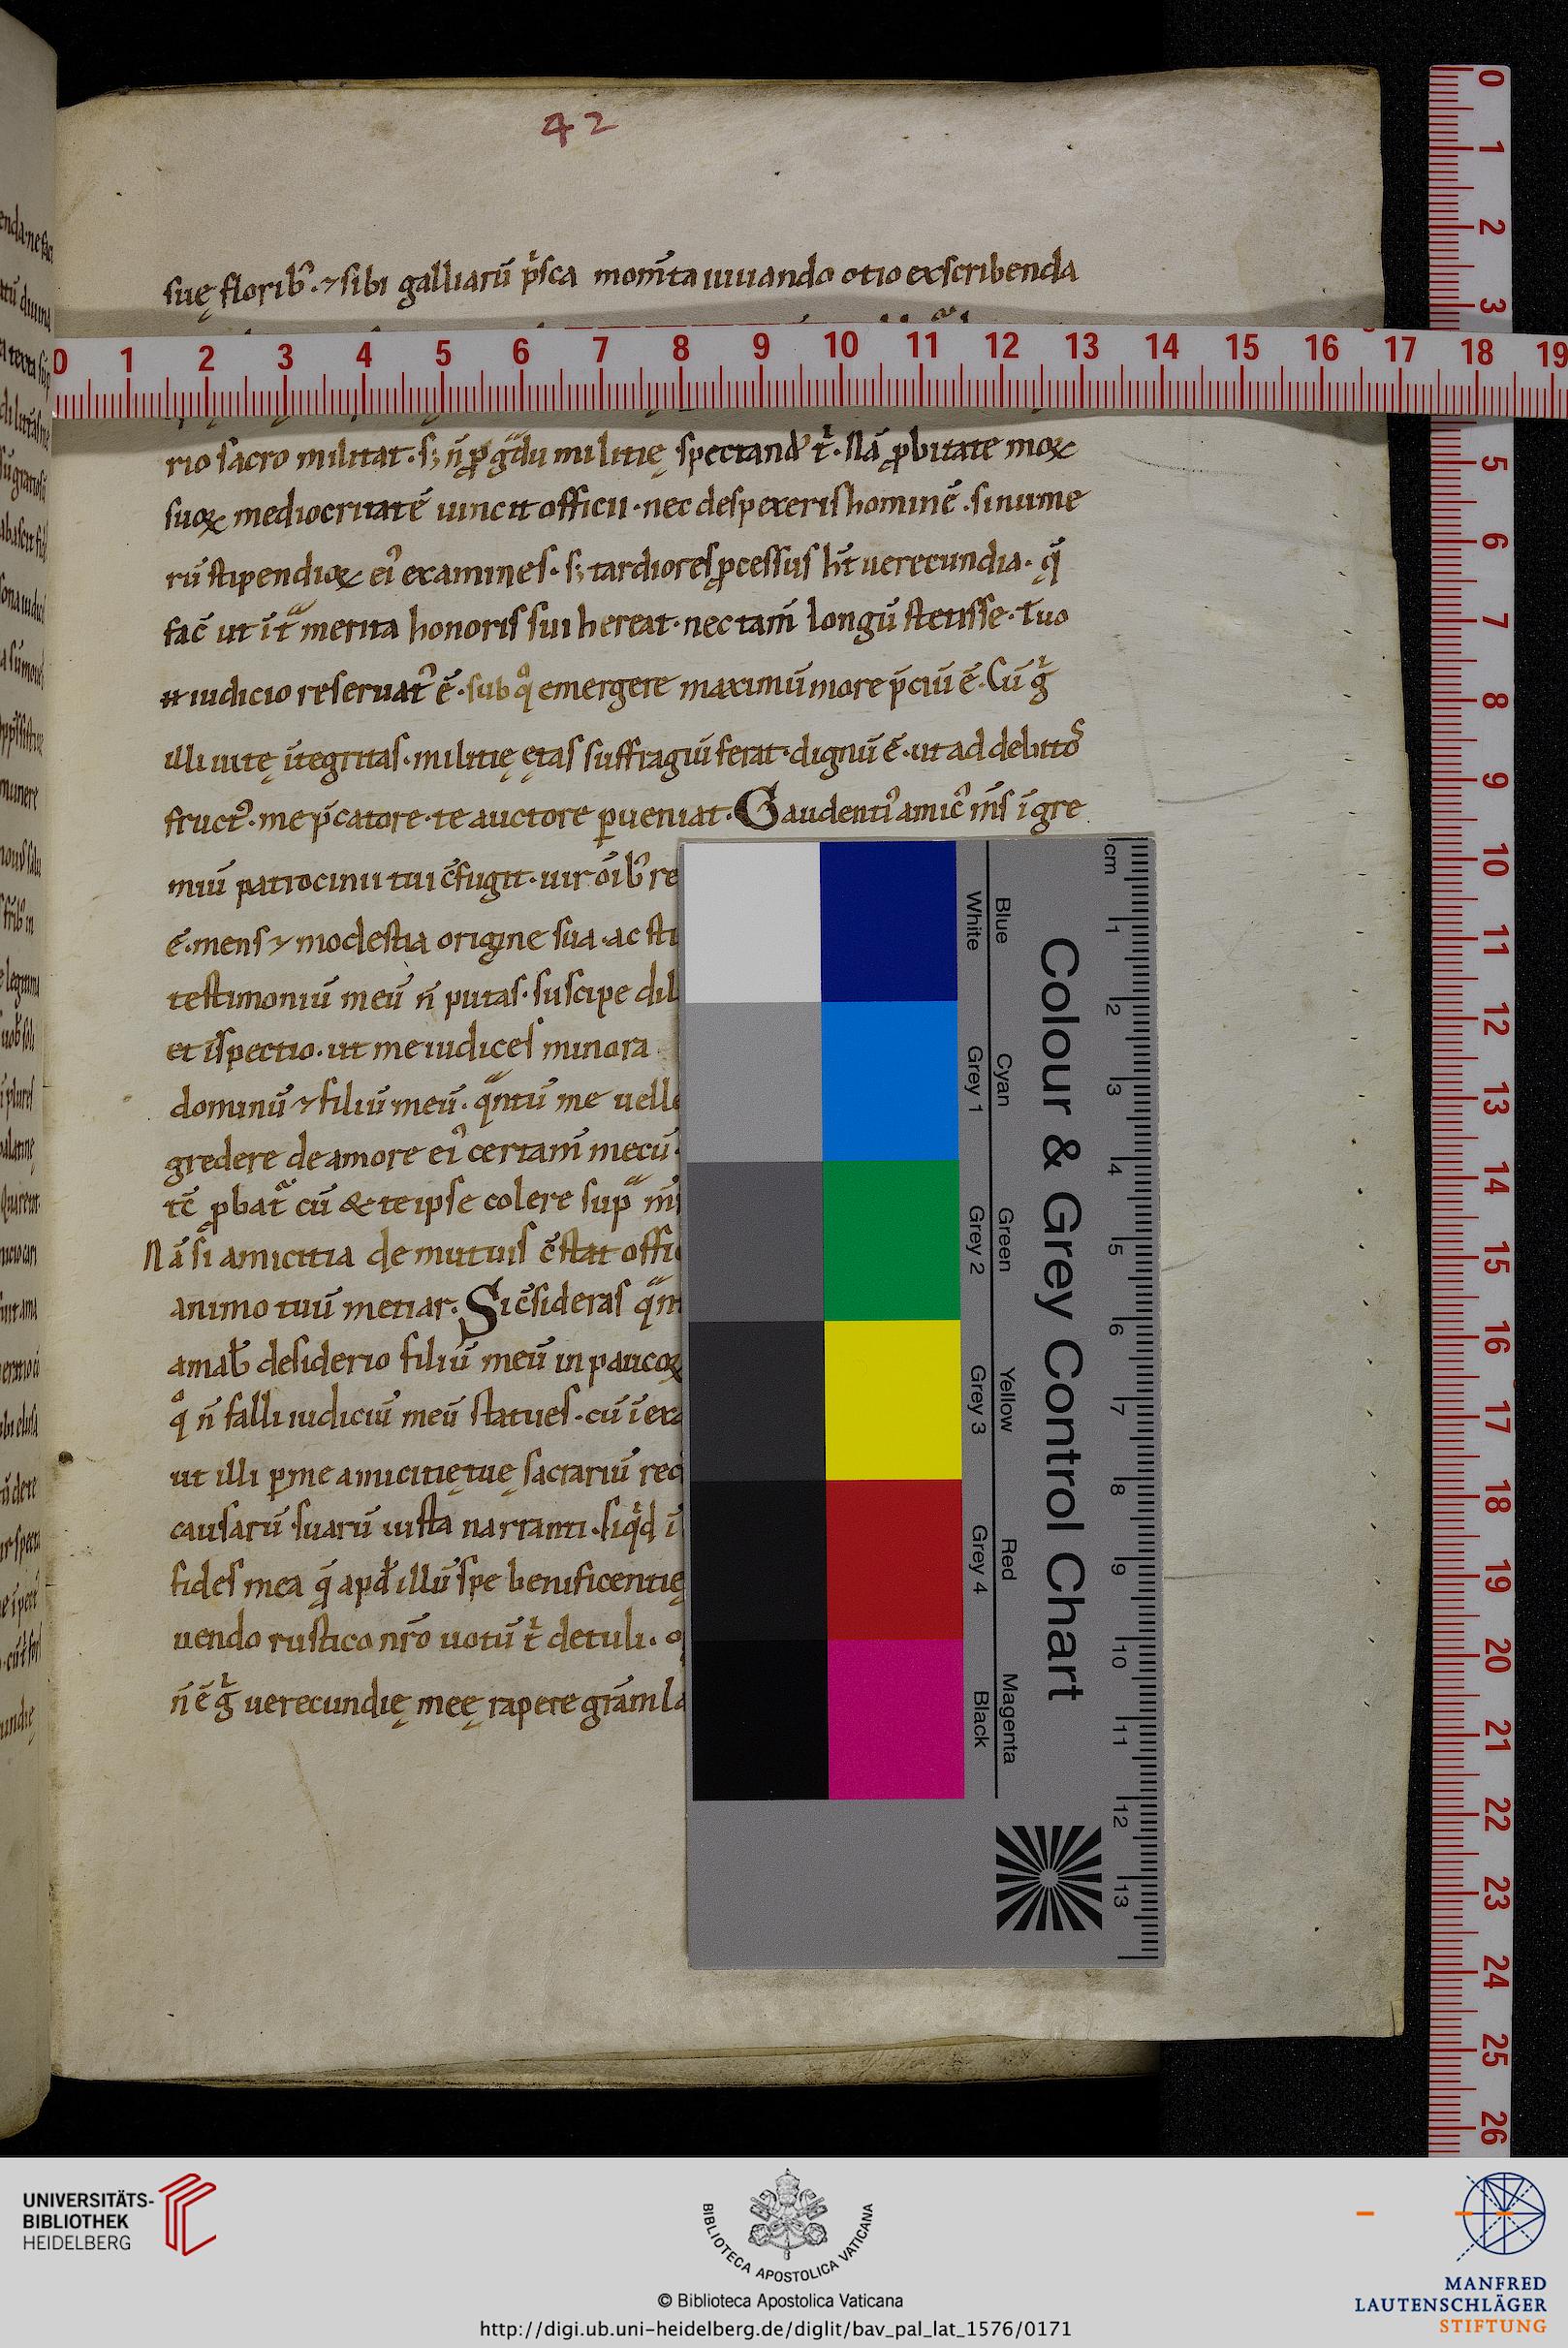 42
suę floribꝫ · ⁊ sibi galliarū p̓sca momṁta iuuando otio exscribenda
rio sacro militat · sꝫ n̄ ꝓ gdu militię spectand' ē · Nā ꝓbitate moꝝ
suoꝝ mediocritatē uincit officii · nec despexeris hominē · si nume
rū stipendioꝝ ei' examines · sꝫ tardiores ꝓcessus ht̄ uerecundia · q̄
fac̄ ut īt merita honoris sui hereat · nec tam̄ longū stetisse · Tuo
iudicio reseruat' ē · sub q° emergere maximū more p̄ciū ē · Cū g̓
illi uitę ītegritas · militię ętas suffragiū ferat · dignū ē · ut ad debitos
fruct' · me p̄catore · te auctore ꝑueniat · Gaudenti' amic' m̄s ī gre
miū patrocinii tui c̄fugit · uir oīb' re
ē · mens ⁊ modestia origine sua · ac sti
testimoniū meū n̄ putas · suscipe dil
et īspectio · ut me iudices minora
dominū ⁊ filiū meū · qntū me uelle
gredere de amore ei' certam̄ mecū ·
tc̄ ꝓbat cū & te ipse colere sup m̄
Nā si amicitia de mutuis c̄stat offic
animo tuū metiar · Si c̄sideras qm
amab̄ desiderio filiū meū in paucoꝝ
q° n̄ falli iudiciū meū statues · cū ī ex
ut illi ꝑ me amicitię tuę sacrariū rec
causarū suarū iusta narranti · siq̓d ī
fides mea q̄ apd̄ illū spe benificentię
uendo rustico nr̄o uotū t̓ detuli · o
n̄ ē g̓ uerecundię meę rapere grām la
0 1 2 3 4 5 6 7 8 9 10 11 12 13 14 15 16 17 18 19
0 1 2 3 5 6 7 8 9 10 11 12 13 14 15 16 17 18 19 20 21 22 23 24 25 26
Colour & Grey Control Chart
Blue Cyan Green Yellow Red Magenta
White Grey 1 Grey 2 Grey 3 Grey 4 Black
cm 1 2 3 4 5 6 7 8 9 10 11 12 13
UNIVERSITÄTS-
BIBLIOTHEK
HEIDELBERG
BIBLIOTECA APOSTOLICA VATICANA
© Biblioteca Apostolica Vaticana
http://digi.ub.uni-heidelberg.de/diglit/bav_pal_lat_1576/0171
MANFRED
LAUTENSCHLÄGER
STIFTUNG